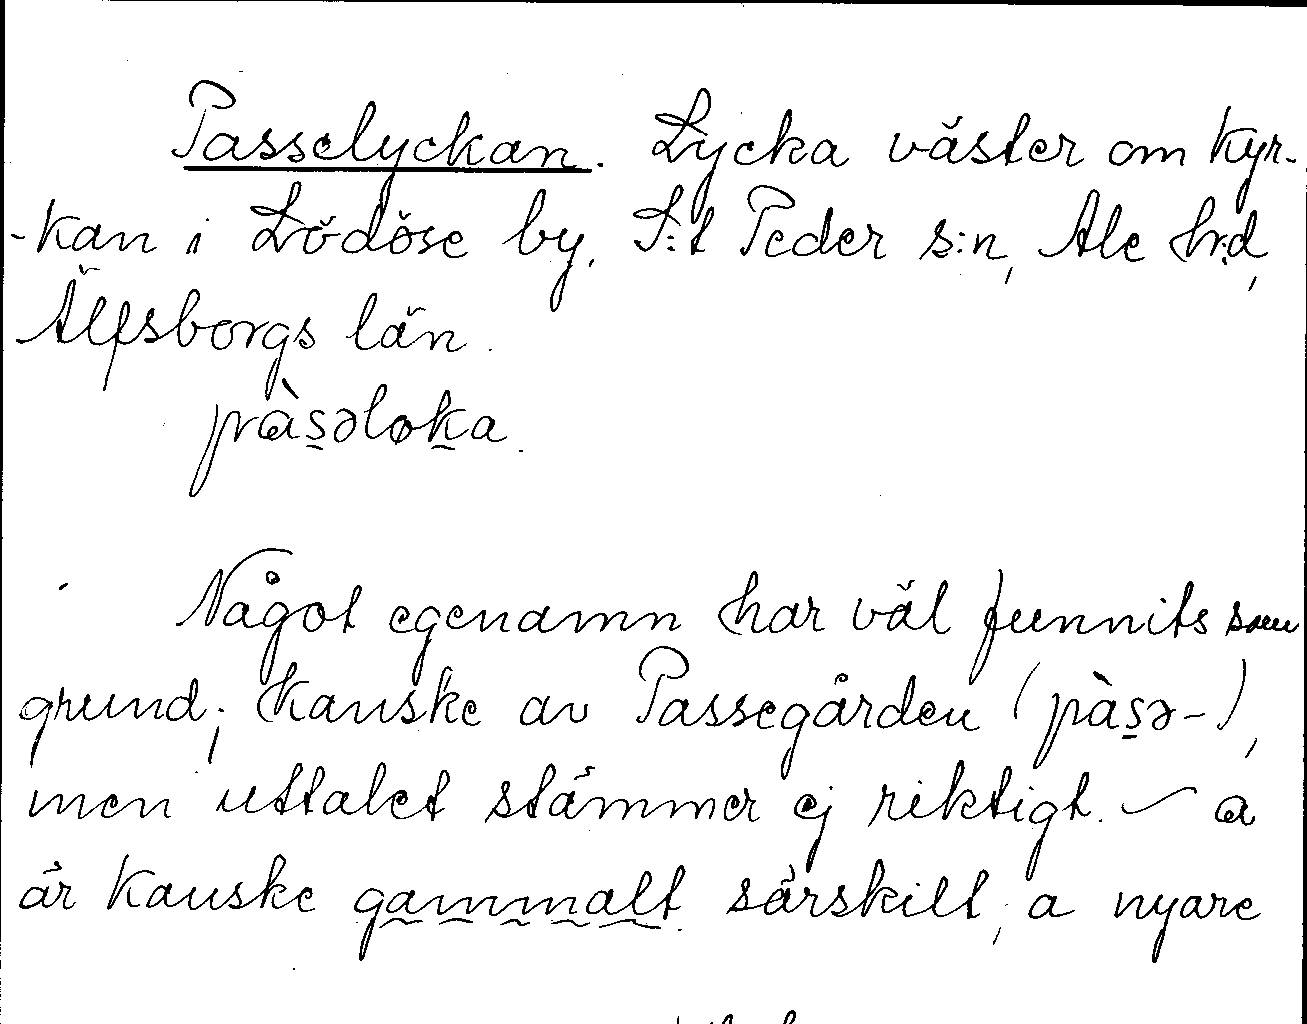 Passelyckan. Lycka väster om kyr-
-kan i Lödöse by, S:t Peder s:n, Ale hrd,
Älfsborgs län.
pɑ̀s̰əlok̰a.
Något egenamn har väl funnits som
grund; kanske av Passegården (pàs̰ə-),
men uttalet stämmer ej riktigt. – ɑ
är kanske gammalt särskilt, a nyare